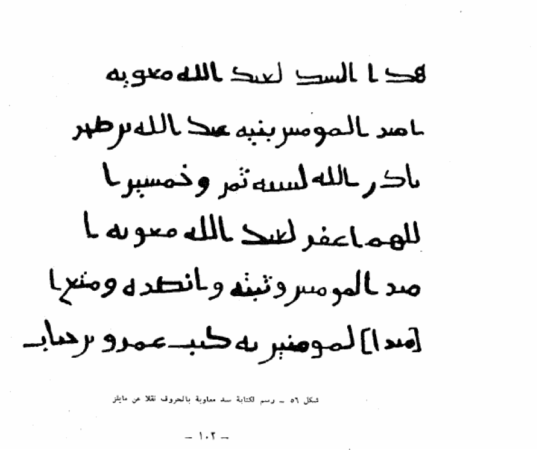 هذا السد لعبد الله معويه
امير المومنين بنيه عبد الله بن صخر
باذن الله لسنه ثمن وخمسين ا
للهم اغفر لعبد الله معويه ا
مير المومنين وثبته وانصره ومتع ا
[مير ا] لمومنين به كتب عمرو بن حباب
شكل ٥٦ ــ رسم لكتابة سد معاوية بالحروف نقلا عن مايلز
ــ ١٠٢ ــ